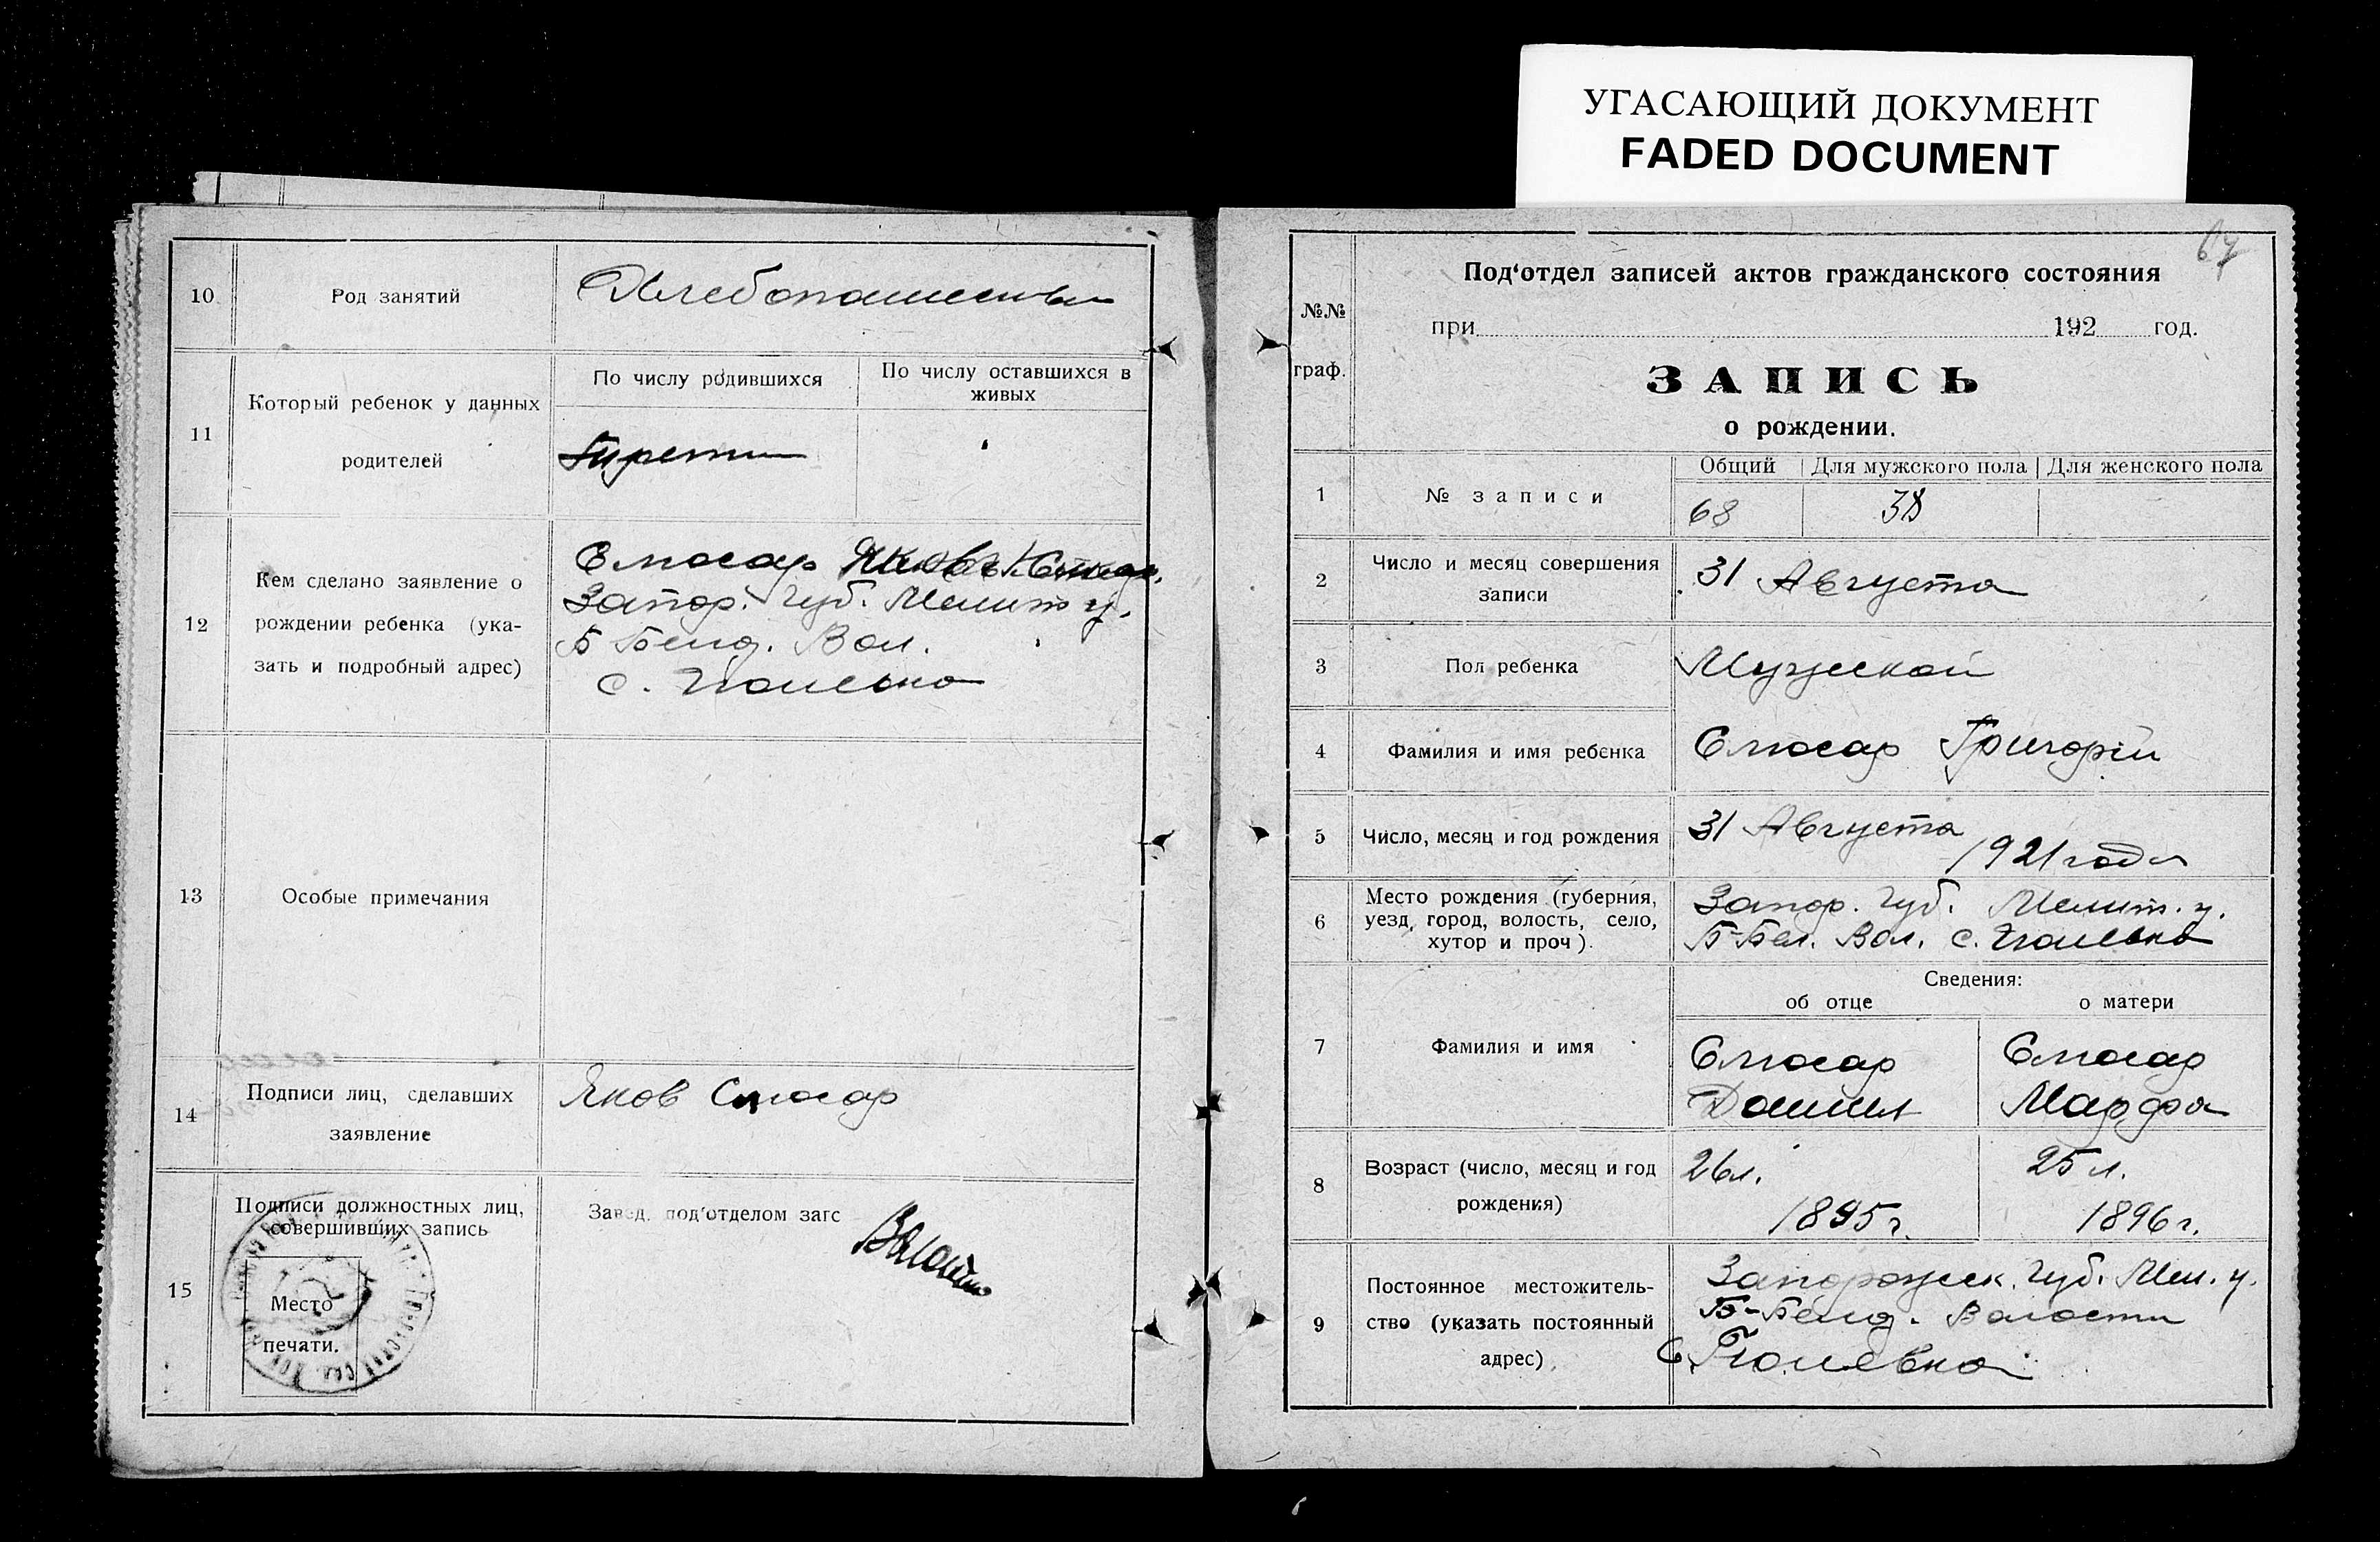 УГАСАЮЩИЙ ДОКУМЕНТ
FADED DOCUMENT
10
Род занятий
Хлебопашество
11
Который ребенок у данных
родителей
По числу родившихся
По числу оставшихся в
живых
12
Кем сделано заявление о
рождении ребенка (ука-
зать и подробный адрес)
Слюсар Яков
Запор. Губ. Мелит у.
Б Белоз. Вол.
с. Гюневка
13
Особые примечания
14
Подписи лиц, сделавших
заявление
Яков Слюсар
15
Подписи должностных лиц,
совершивших запись
Место
печати.
Завед. под‘отделом загс
67
№№
граф.
Под‘отдел записей актов гражданского состояния
при 192 год.
ЗАПИСЬ
о рождении.
1
№ записи
Общий
Для мужского пола
Для женского пола
68
38
2
Число и месяц совершения
записи
31 Августа
3
Пол ребенка
Мужской
4
Фамилия и имя ребенка
Слюсар Григорій
5
Число, месяц и год рождения
31 Августа
1921 года
6
Место рождения (губерния,
уезд, город, волость, село,
хутор и проч).
Запор. Губ. Мелит. у.
Б-Бел. Вол. с. Гюневка
Сведения:
об отце
о матери
7
Фамилия и имя
Слюсар
Данил
Слюсар
Марфа
8
Возраст (число, месяц и год
рождения)
26 л.
1895 г.
25 л.
1896 г.
9
Постоянное местожитель-
ство (указать постоянный
адрес)
Запорожск. Губ. Мел. у.
Б-Белоз. Волости
С. Гюневка